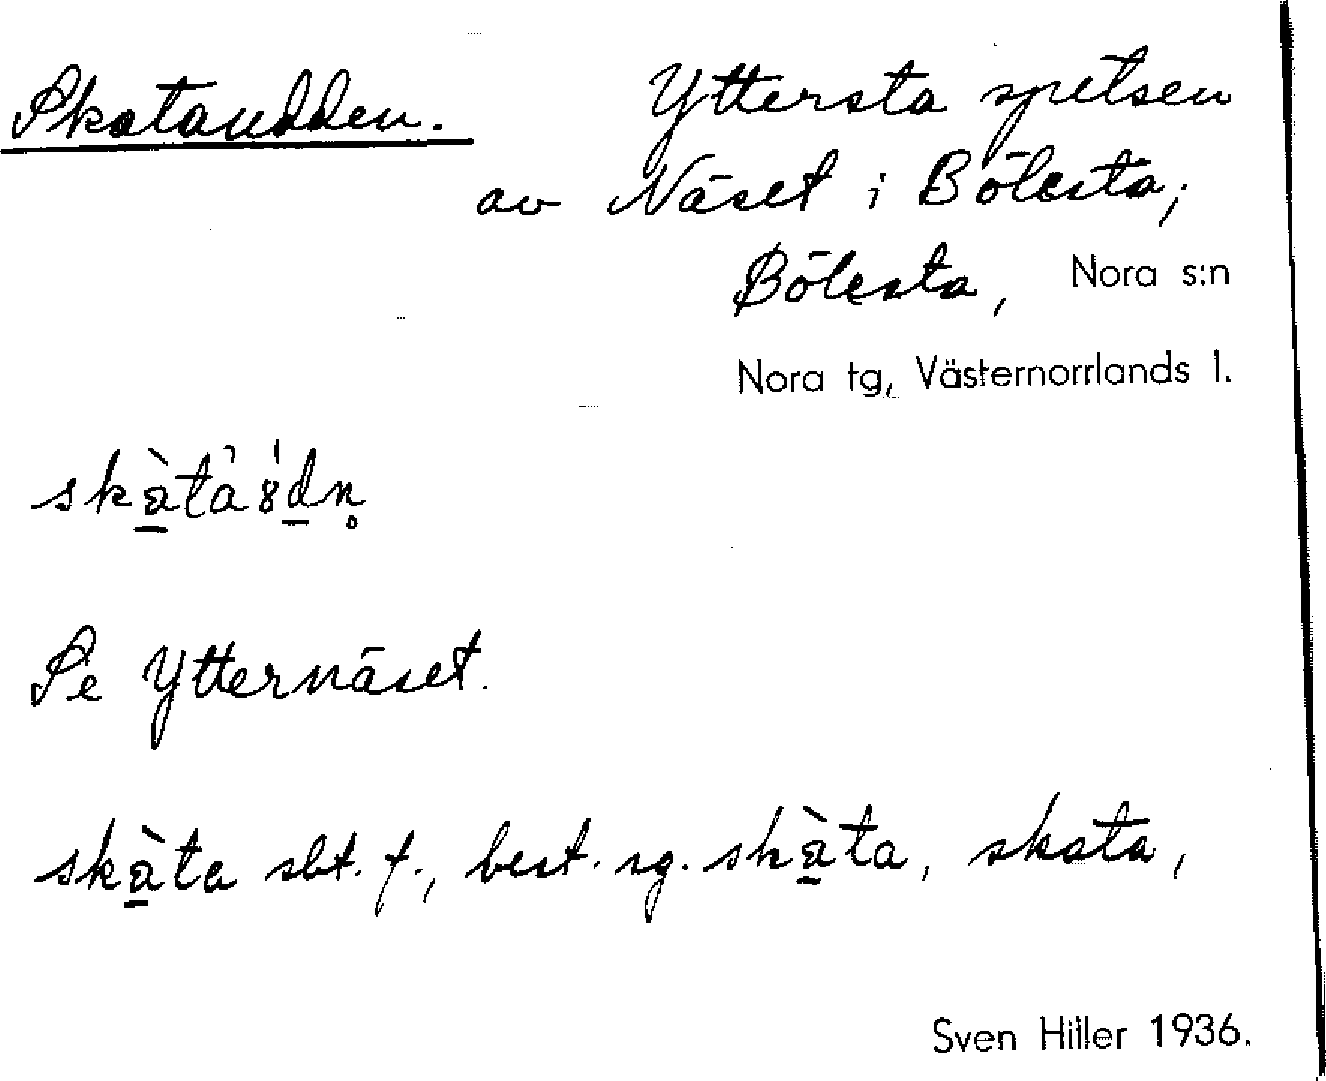 Skataudden. Yttersta spetsen
av Näset i Bölesta,
Bölesta, Nora s:n
Nora tg, Västernorrlands l.
Se Ytternäset.
sbt. f., best. sg. skata,
Sven Hiller 1936.